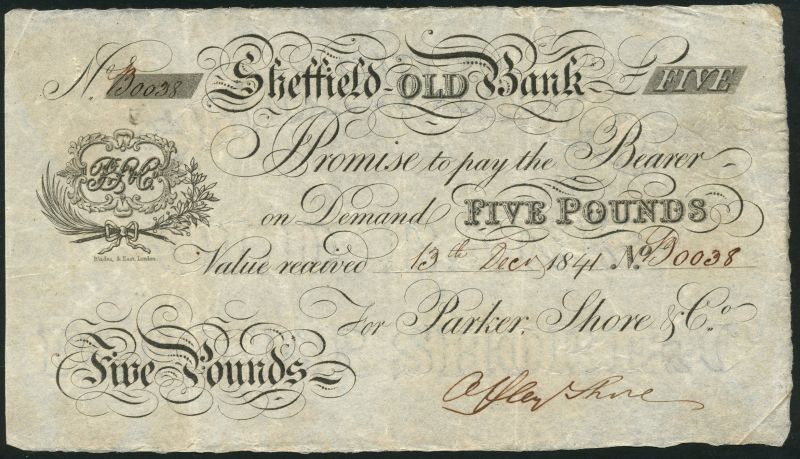 No. B0038
Sheffield OLD Bank
£ FIVE
PS & Co.
I Promise to pay the Bearer
on Demand FIVE POUNDS
Value received 13th Decr 1841 No. B0038
Bladon, & East, London.
For Parker, Shore & Co.
Five Pounds
Offley Shore